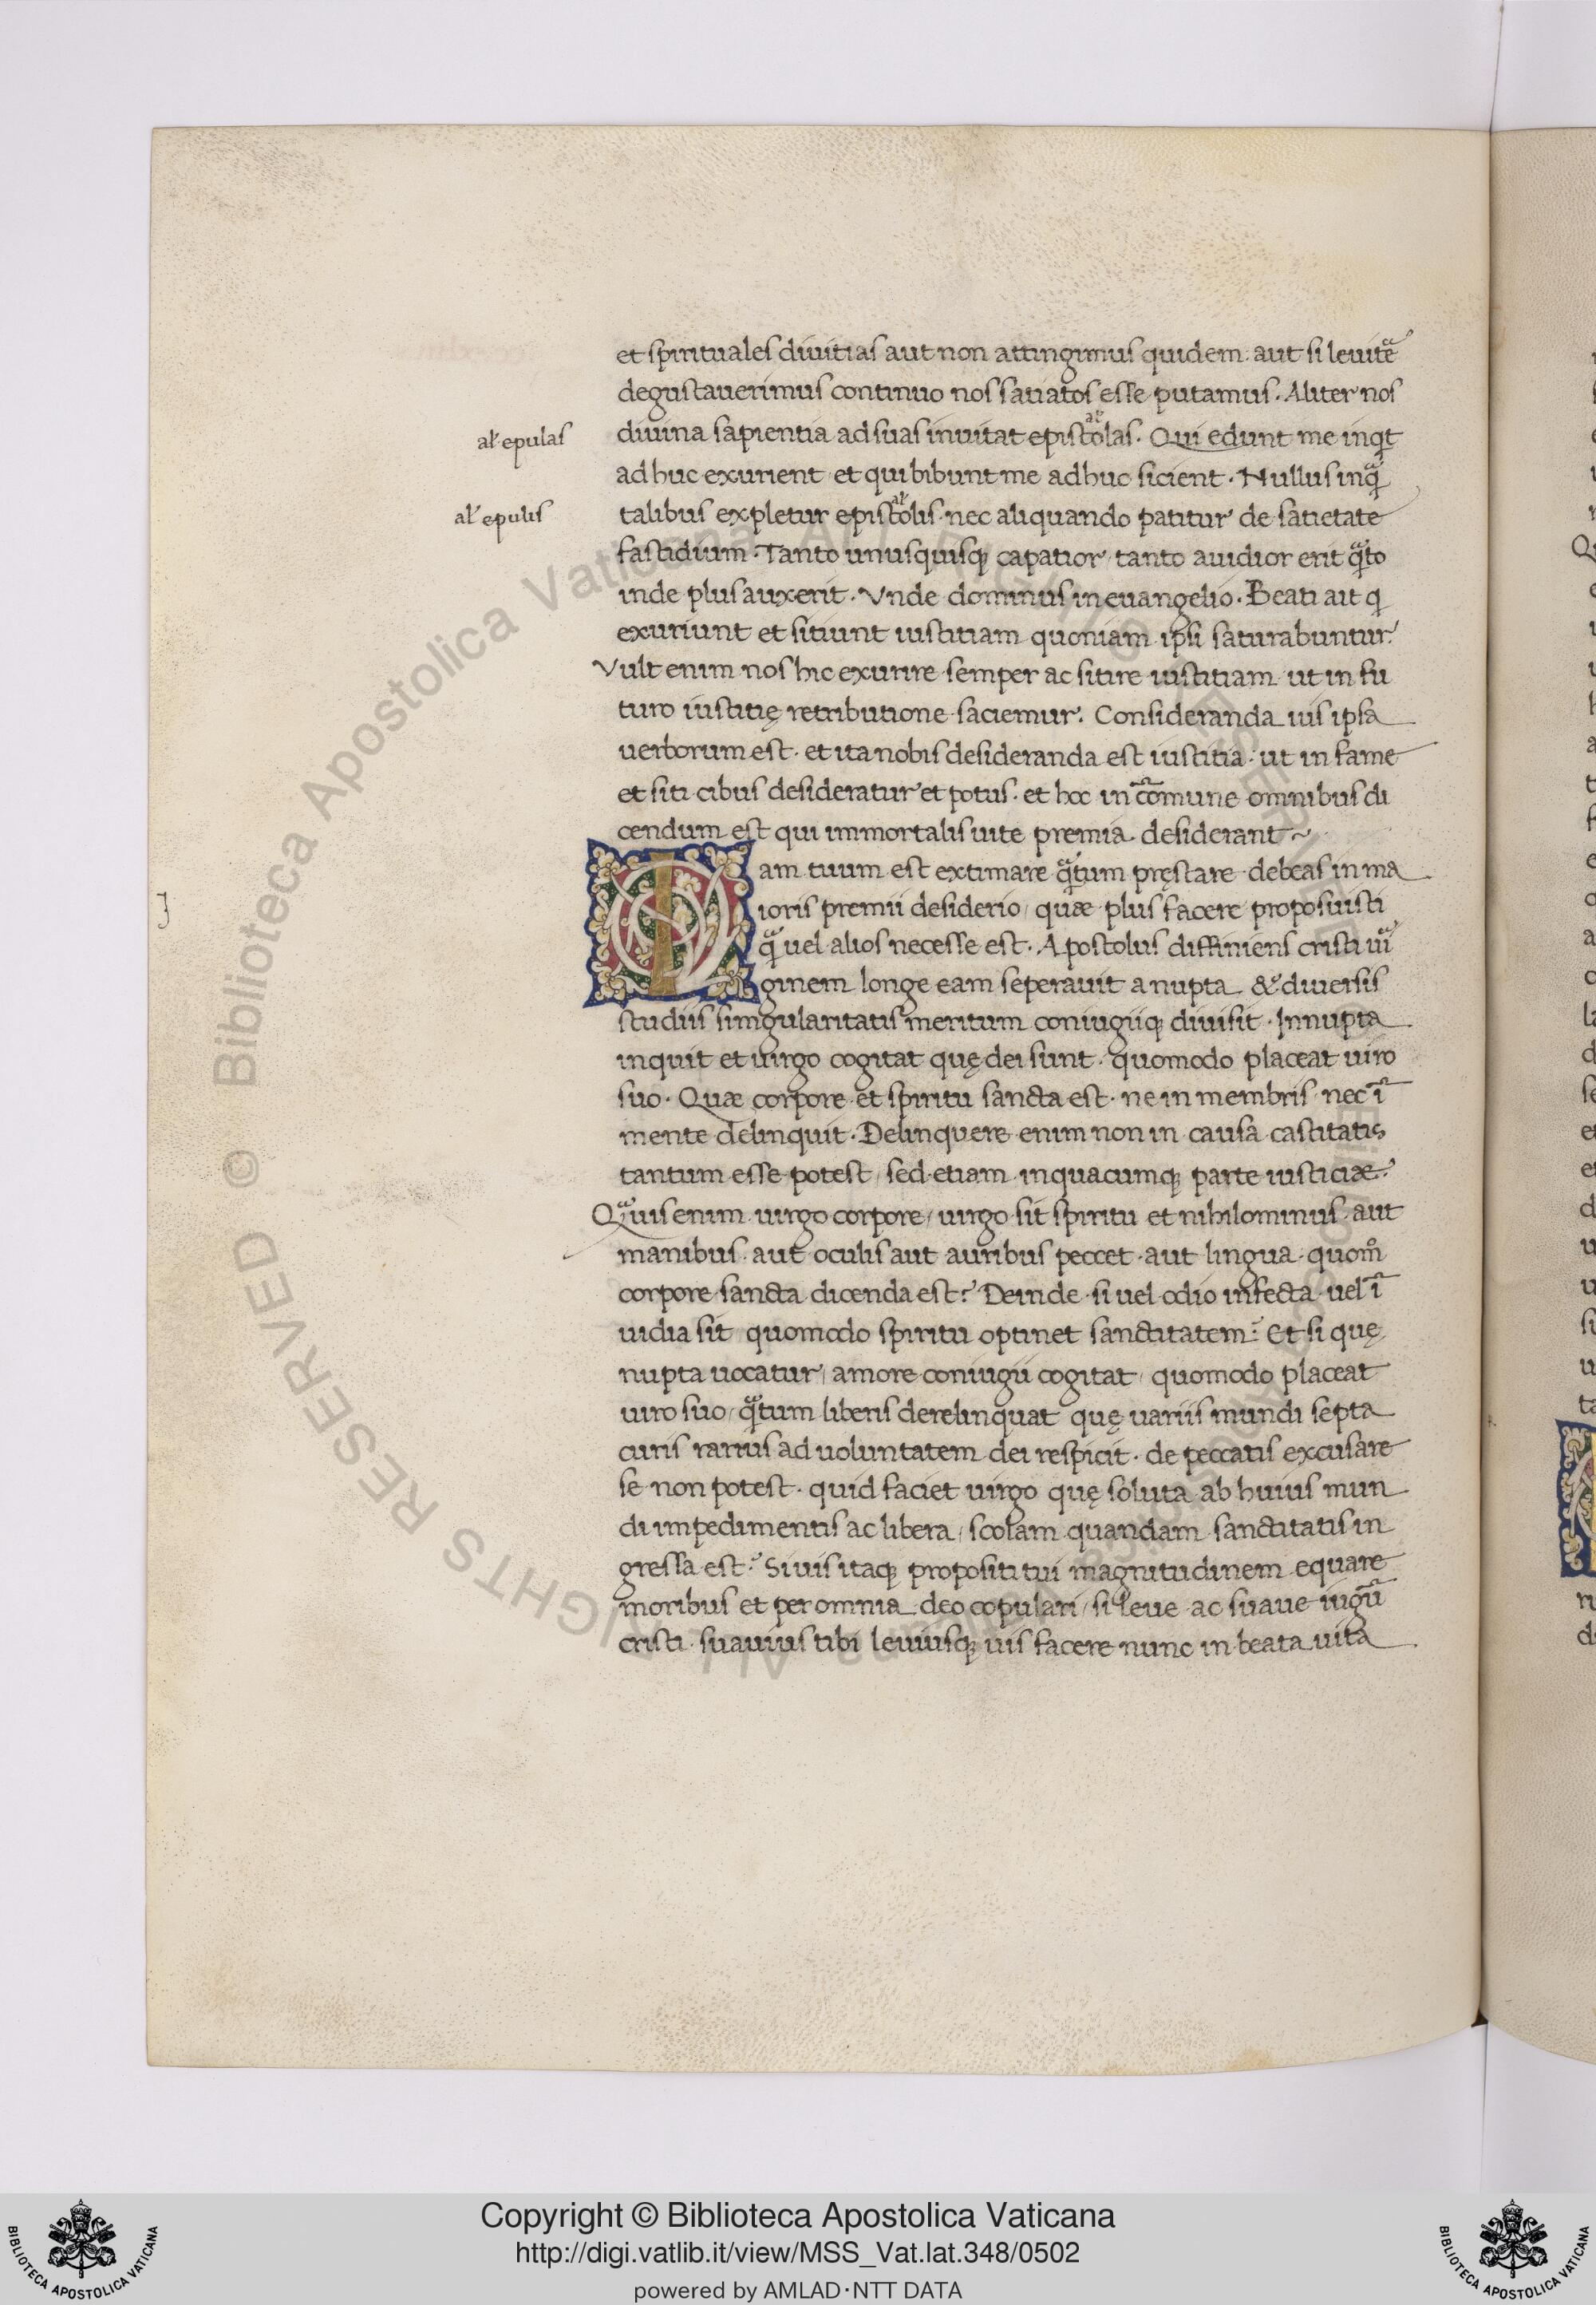 et spirituales diuitias aut non attingimus quidem: aut si leuit̃e
degustauerimus continuo nos satiatos esse putamus. Aliter nos
al' epulas
diuina sapientia ad suas inuitat epistolas. Qui edunt me inqt
al'
ad huc exurient et qui bibunt me adhuc sicient. Nullus inq̃
al' epulis
talibus expletur epistolis. nec aliquando patitur de satietate
al'
fastidium. Tanto unusquisq; capatior, tanto auidior erit q̃to
inde plus auxerit. Vnde dominus in euangelio. Beati ait q
exuriunt et sitiunt iustitiam quoniam ipsi saturabuntur.
Vult enim nos hic exurire semper ac sitire iustitiam ut in fu
turo iustitię retributione saciemur. Consideranda uis ipsa
uerborum est. et ita nobis desideranda est iustitia: ut in fame
et siti cibus desideratur et potus. et hoc in cõmune omnibus di
cendum est qui immortalis uite premia desiderant~
Iam tuum est extimare q̃tum pręstare debeas in ma
ioris premii desiderio, quæ plus facere proposuisti
q̃ uel alios necesse est. Apostolus diffiniens cristi uĩ
ginem longe eam seperauit a nupta & diuersis
studiis simgularitatis meritum coniugiiq; diuisit. Innupta
inquit et uirgo cogitat quę dei sunt. quomodo placeat uiro
suo. Quæ corpore et spiritu sancta est. ne in membris nec ĩ
mente delinquit. Delinquere enim non in causa castitatis
tantum esse potest, sed etiam in quacumq; parte iusticiæ.
Q̃uis enim uirgo corpore, uirgo sit spiritu et nihilominus aut
manibus aut oculis aut auribus peccet aut lingua quom̃
corpore sancta dicenda est? Deinde si uel odio infecta uel ĩ
uidia sit quomodo spiritu optinet sanctitatem? Et si quę
nupta uocatur, amore coniugii cogitat, quomodo placeat
uiro suo, q̃tum liberis derelinquat quę uariis mundi septa
curis rarius ad uoluntatem dei respicit. de peccatis excusare
se non potest. quid faciet uirgo quę soluta ab huius mun
di impedimentis ac libera, scolam quandam sanctitatis in
gressa est? Si uis itaq; propositi tui magnitudinem equare
moribus et per omnia deo copulari, si leue ac suaue iugũ
cristi suauius tibi leuiusq; uis facere nunc in beata uita
© Biblioteca Apostolica Vaticana ALL RIGHTS RESERVED
Copyright © Biblioteca Apostolica Vaticana
http://digi.vatlib.it/view/MSS_Vat.lat.348/0502
powered by AMLAD·NTT DATA
BIBLIOTECA APOSTOLICA VATICANA
BIBLIOTECA APOSTOLICA VATICANA